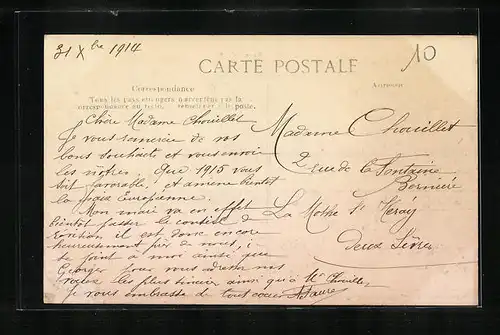 31 Xbre 1914
10
CARTE POSTALE
Correspondance
Adresse
Tous les pays étrangers n'acceptent pas la
correspondance au recto, se renseigner à la poste.
Chère Madame Chouillet
Je vous remercie de vos
bons souhaits et vous envoie
les nôtres. Que 1915 vous
soit favorable, et amène bientôt
la paix Européenne.
Mon mari va en effet
bientôt passer le conseil de
révision il est donc encore
heureusement près de nous,
se joint à moi ainsi que
Georges pour vous adresser nos
vœux les plus sincères ainsi qu'à Mr Chouillet
Je vous embrasse de tout cœur
Madame Chouillet
2 rue de la Fontaine
La Mothe St Héray
Deux Sèvres